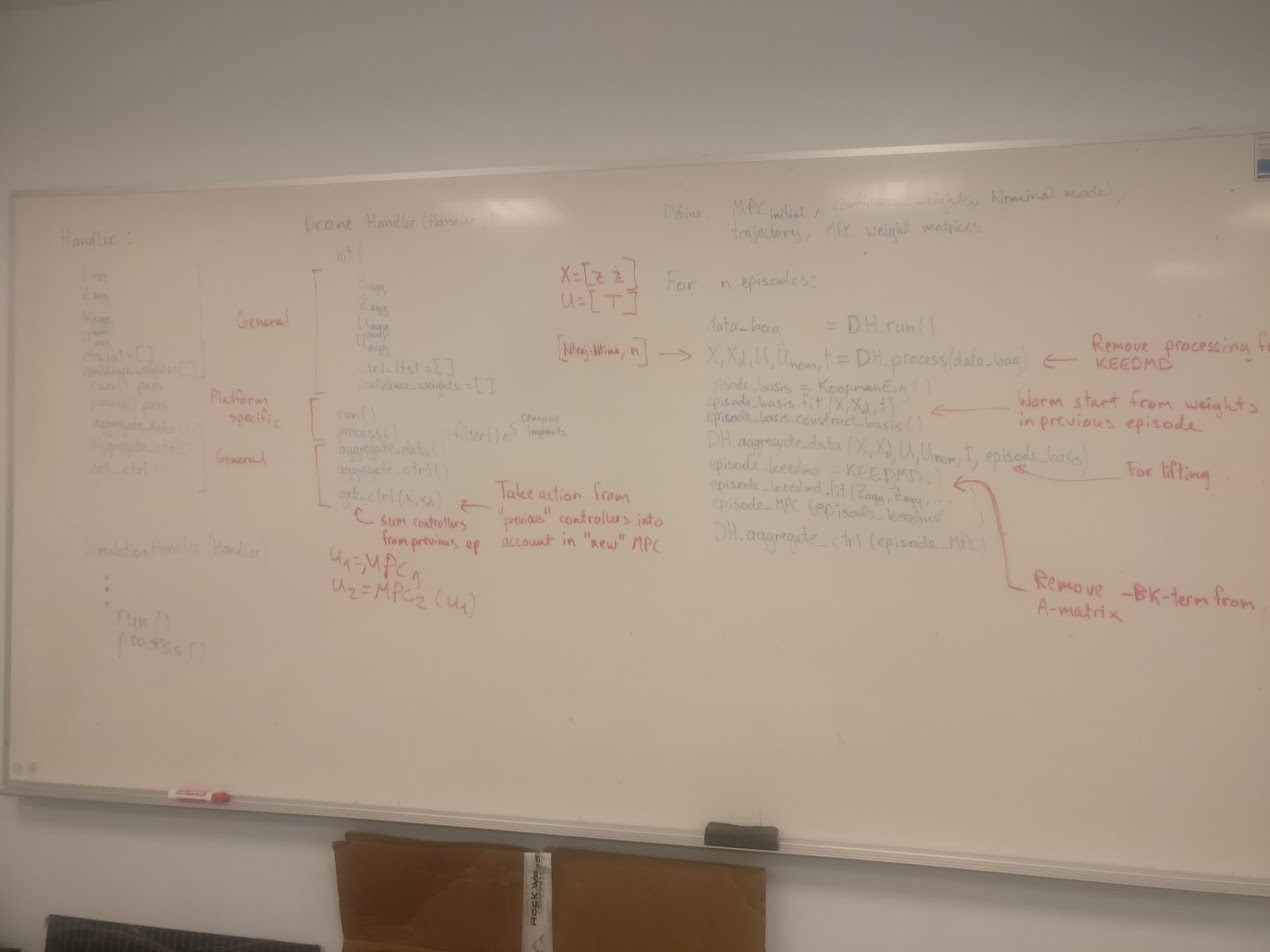 Handler :
Zagg
Uagg
ctrl_list = [ ]
confidence_weights = [ ]
run() pass
process() pass
aggregate_data()
aggregate_ctrl()
get_ctrl()
General
Platform
specific
General
SimulationHandler (Handler)
run ()
process ()
Drone Handler (Handler)
init (
Zagg
Żagg
Uagg
ctrl_list = [ ]
confidence_weights = [ ]
run()
process()
filter()
remove
impacts
aggregate_data()
aggregate_ctrl()
get_ctrl (x, xd)
sum controllers
from previous ep
Take action from
"previous" controllers into
account in "new" MPC
u1 = MPC1
u2 = MPC2 (u1)
Define: MPC initial, confidence_weights, Nominal model,
trajectory, MPC weight matrices
X = [z ż]
U = [T]
For n episodes:
data_bag = DH.run()
[Ntraj, Ntime, n] → X, Xd, U, Unom, t = DH.process(data_bag)
Remove processing
KEEDMD
episode_basis.fit (X, Xd, t)
episode_basis.construct_basis()
Warm start from weights
in previous episode
DH.aggregate_data (X, Xd, U, Unom, t, episode_basis)
For lifting
episode_keedmd = KEEDMD()
episode_keedmd.fit (Zagg, Żagg, ...
episode_MPC (episode_keedmd
DH.aggregate_ctrl (episode_MPC)
Remove -BK-term from
A-matrix